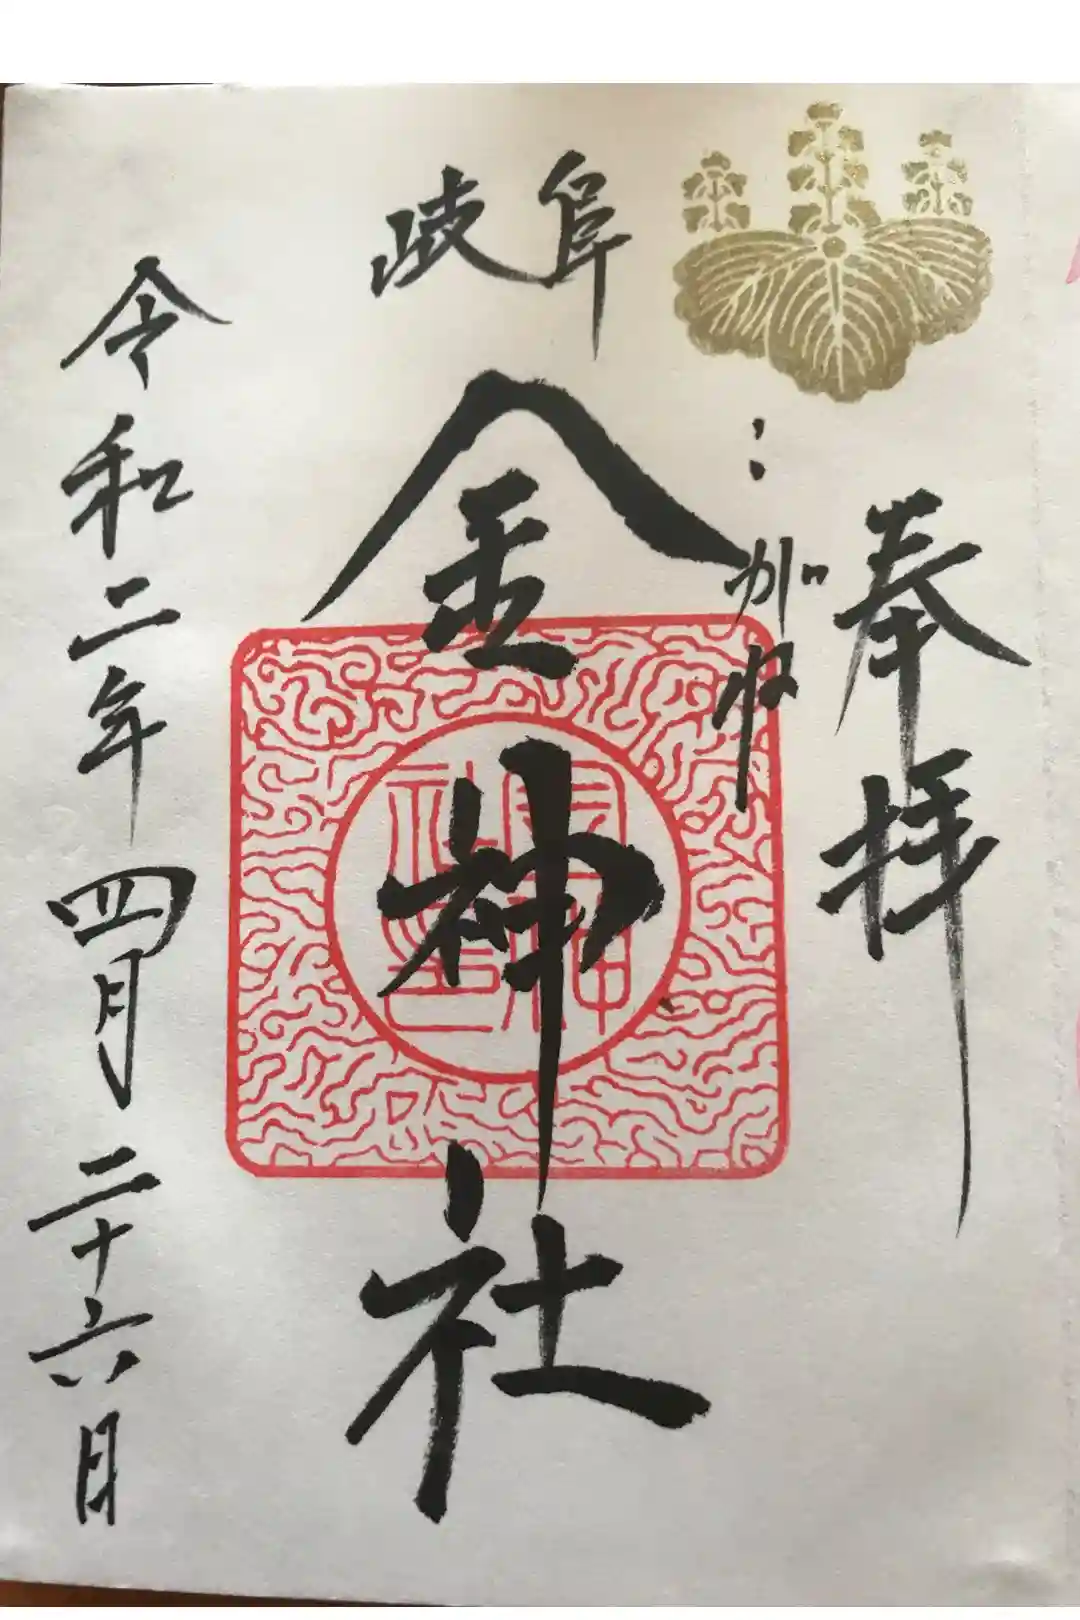 奉拝
こがね
岐阜
金神社
令和二年四月二十六日